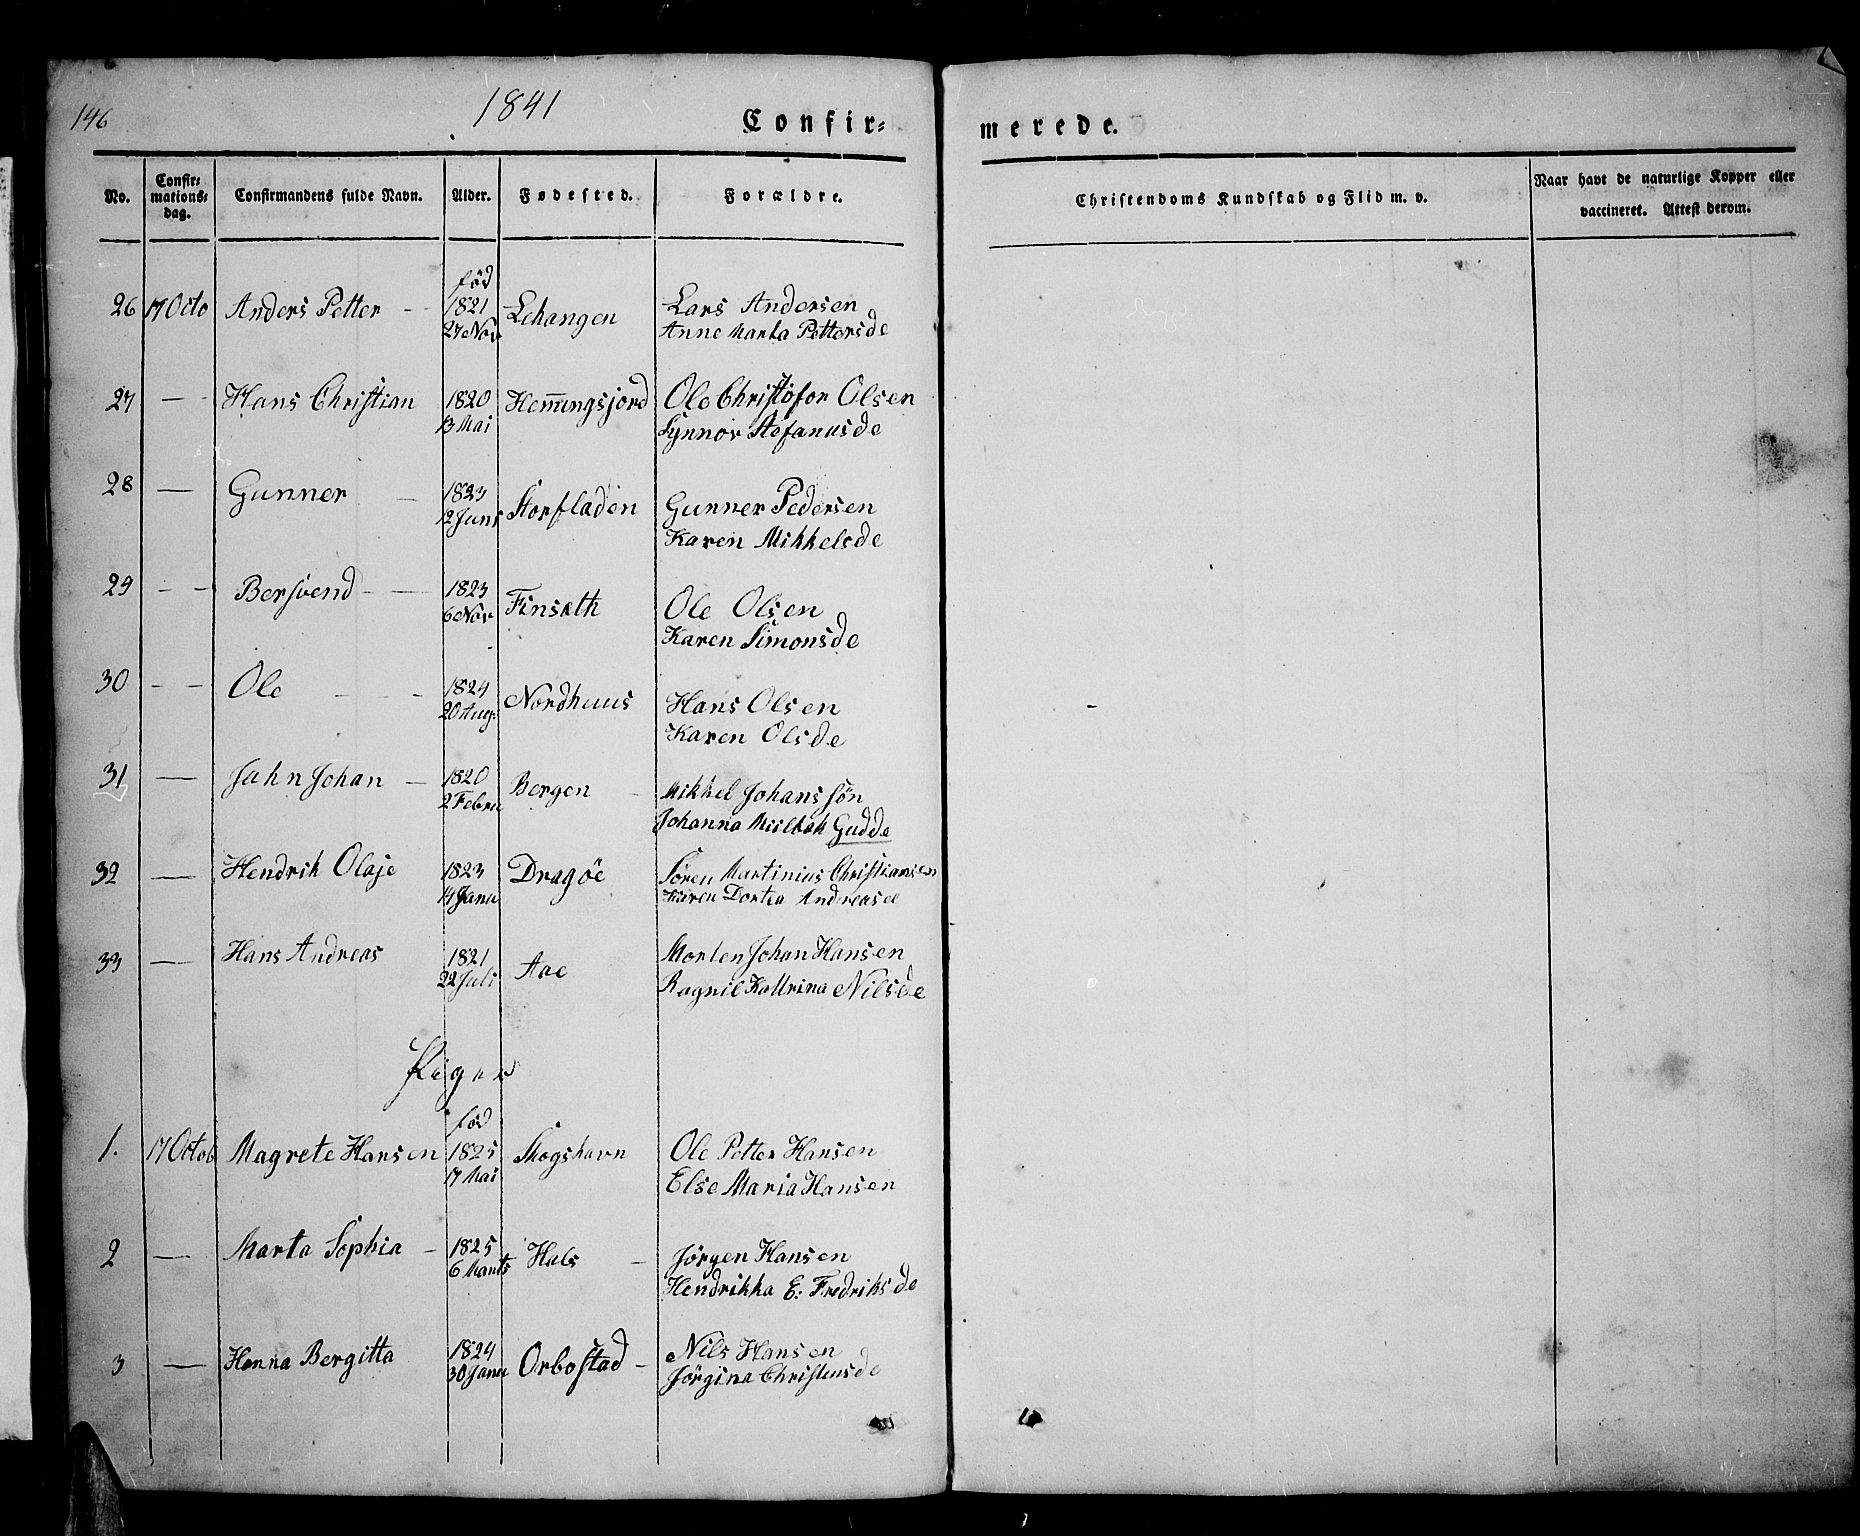 146
1841
Confir-
merede.
No. Confir-mations-dag. Confirmandens fulde Navn. Alder. Fødested. Forældre. Christendoms Kundskab og Flid m. v. Naar havt de naturlige Kopper eller vaccineret. Attest derom.
født
26 17 Octo Anders Petter - 1821 Lehangen Lars Andersen
27 Nov Anne Marta Pettersde
27 - Hans Christian 1820 Henningsjord Ole Christofor Olsen
13 Mai Synnov Stefanusde
28 - Gunner - 1823 Storfladen Gunner Pedersen
12 Juni Karen Mikkelsde
29 - - Bersvend - - 1823 Finsæth Ole Olsen
6 Nov Karen Simonsde
30 - - Ole - - 1824 Nordhuus Hans Olsen
20 Aug: Karen Olsde
31 - Jahn Johan - 1820 Bergen - Mikkel Johanssøn
2 Febru Johanna Gudde
32 - Hendrik Olaje 1823 Dragöe Sören Martinius Christiansen
14 Janu Karen Dortea
33 - Hans Andreas 1821 Aae Morten Johan Hansen
22 Juli Ragnil Kattrina Nilsde
Piger
fød
1. 17 Octob Magrete Hansen 1825 Skogshavn Ole Petter Hansen
17 Mai Else Maria Hansen
2 - Marta Sophia - 1825 Hals - Jørgen Hansen
6 Marts Hendrikka E: Fredriksde
3 - Hanna Bergitta 1824 Orbostad - Nils Hansen
30 Janu Jørgina Christensde